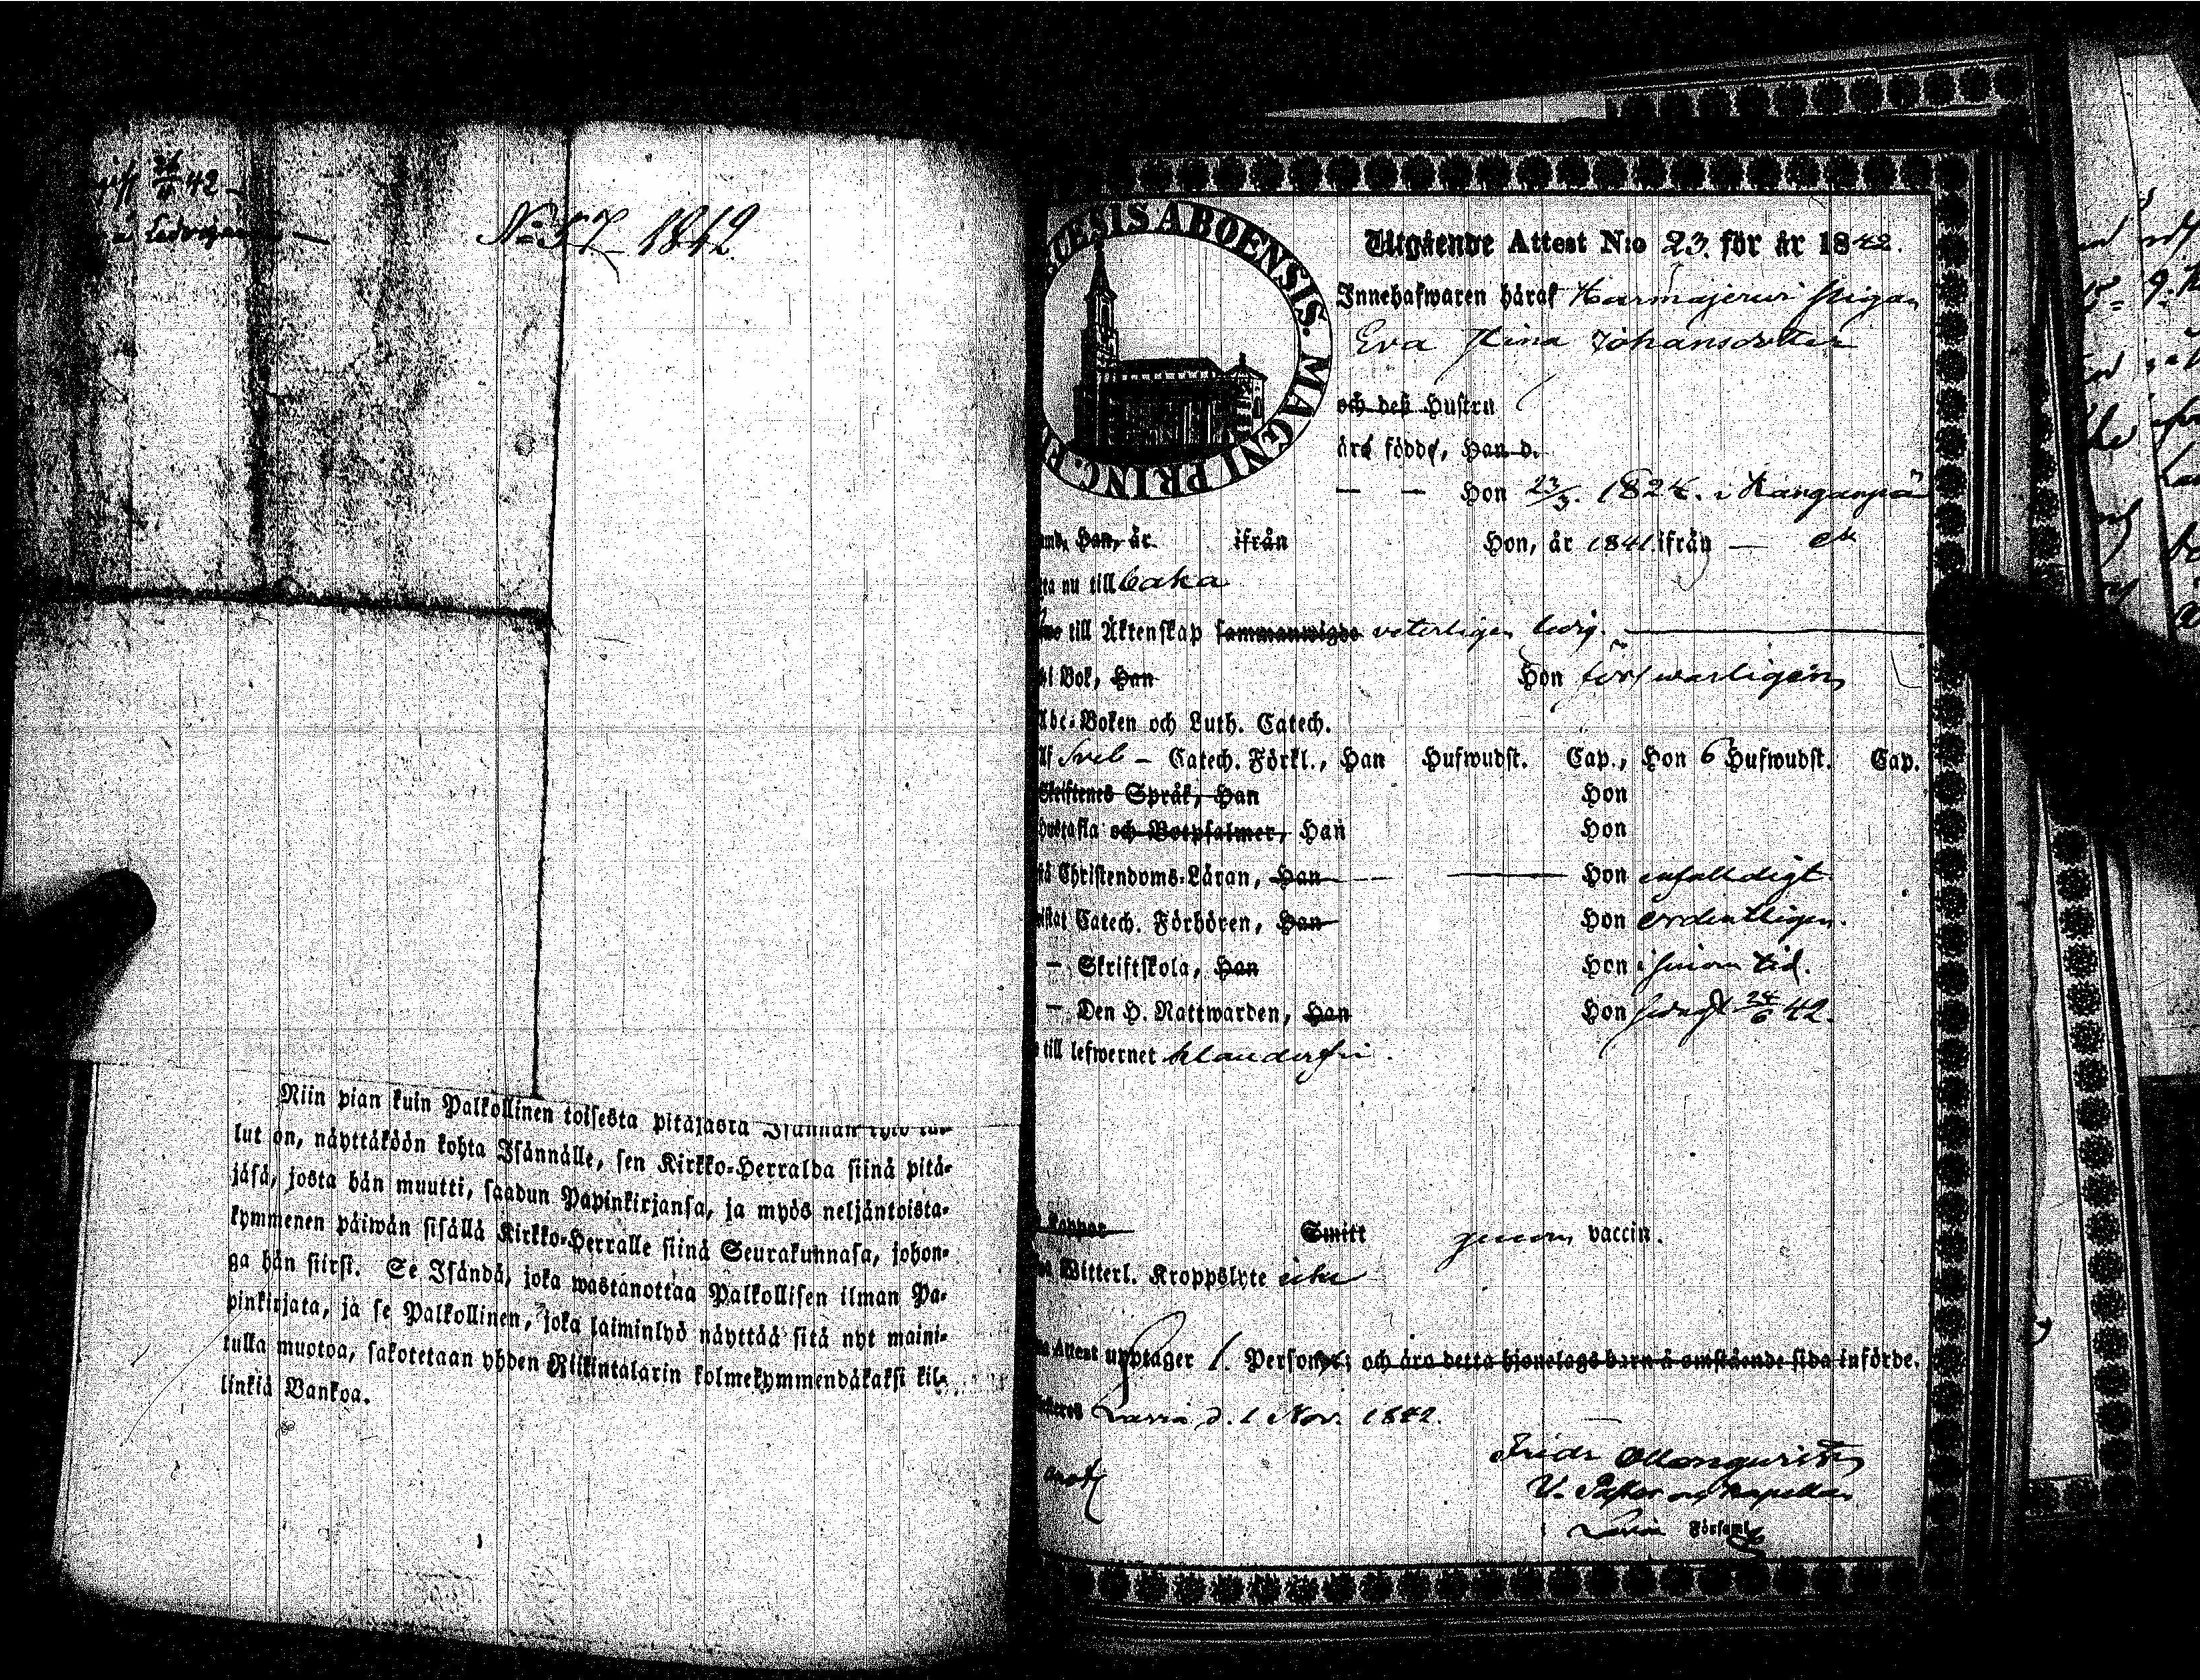 42
No 57 1842
Niin pian kuin Palkollinen toisesta pitäjästä Isännän
lut on, näyttäköön kohta Isännälle, sen Kirkko-Herralda siinä pitä-
jäsä, josta hän muutti, saadun Papinkirjansa, ja myös neljäntoista-
kymmenen päiwän sisällä Kirkko-Herralle siinä Seurakunnasa, johon-
ga hän siirsi. Se Isändä, joka wastanottaa Palkollisen ilman Pa-
pinkirjata, ja se Palkollinen, joka laiminlyö näyttää sitä nyt maini-
tulla muotoa, sakotetaan yhden Riikintalarin kolmekymmendäkaksi kil-
linkiä Bankoa.
ABOENSIS. MAGNI PRINC.
Utgående Attest N:o 23. för år 1842.
Innehafwaren häraf Harmajerwi Pigan
Eva Stina Johansdotter
och deß Hustru
äro födde, Han d.
— — Hon 23/3. 1824. i Kanganpää
Han, år ifrån Hon, år 1841 ifrån —
nu till
till Äktenskap sammanwigde veterligen ledig.
Bok, Han Hon förswarligen
Abc-Boken och Luth. Catech.
Sveb - Catech. Förkl., Han Hufwudst. Cap., Hon 6 Hufwudst. Cap.
Skriftenes Språk, Han Hon
Hustafla och Botpsalmer, Han Hon
Christendoms-Läran, Han — Hon enfaldigt
Catech. Förhören, Han Hon ordentligen.
— Skriftskola, Han Hon i sinom tid.
— Den H. Nattwarden, Han Hon sidst 24/6 42.
till lefwernet klanderfri.
koppor Smitt genom vaccin.
Witterl. Kroppslyte icke
Attest upptager 1. Person; och äro detta hjonelags barn å omstående sida införde.
Lavia d. 1 Nov. 1842.
Fridr
V. Pastor och Kapellan
i Lavia Församl.